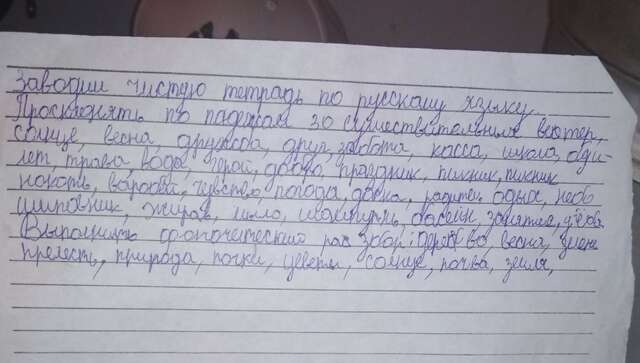 Заводим чистую тетрадь по русскому языку.
Просклонять по падежам 30 существительных ветер,
солнце, весна, дружба, друг, забота, касса, школа,
трава, вода, герой, добро, праздник, пикник, пикник
чувство, погода, доска, родител, отдых, небо
жираф, мыло, шампунь, бассейн, занятие, учёба
Выполнить фонетический раз збор: дерево весна,
прелесть, природа, почки, цветы, солнце, почва, земля,